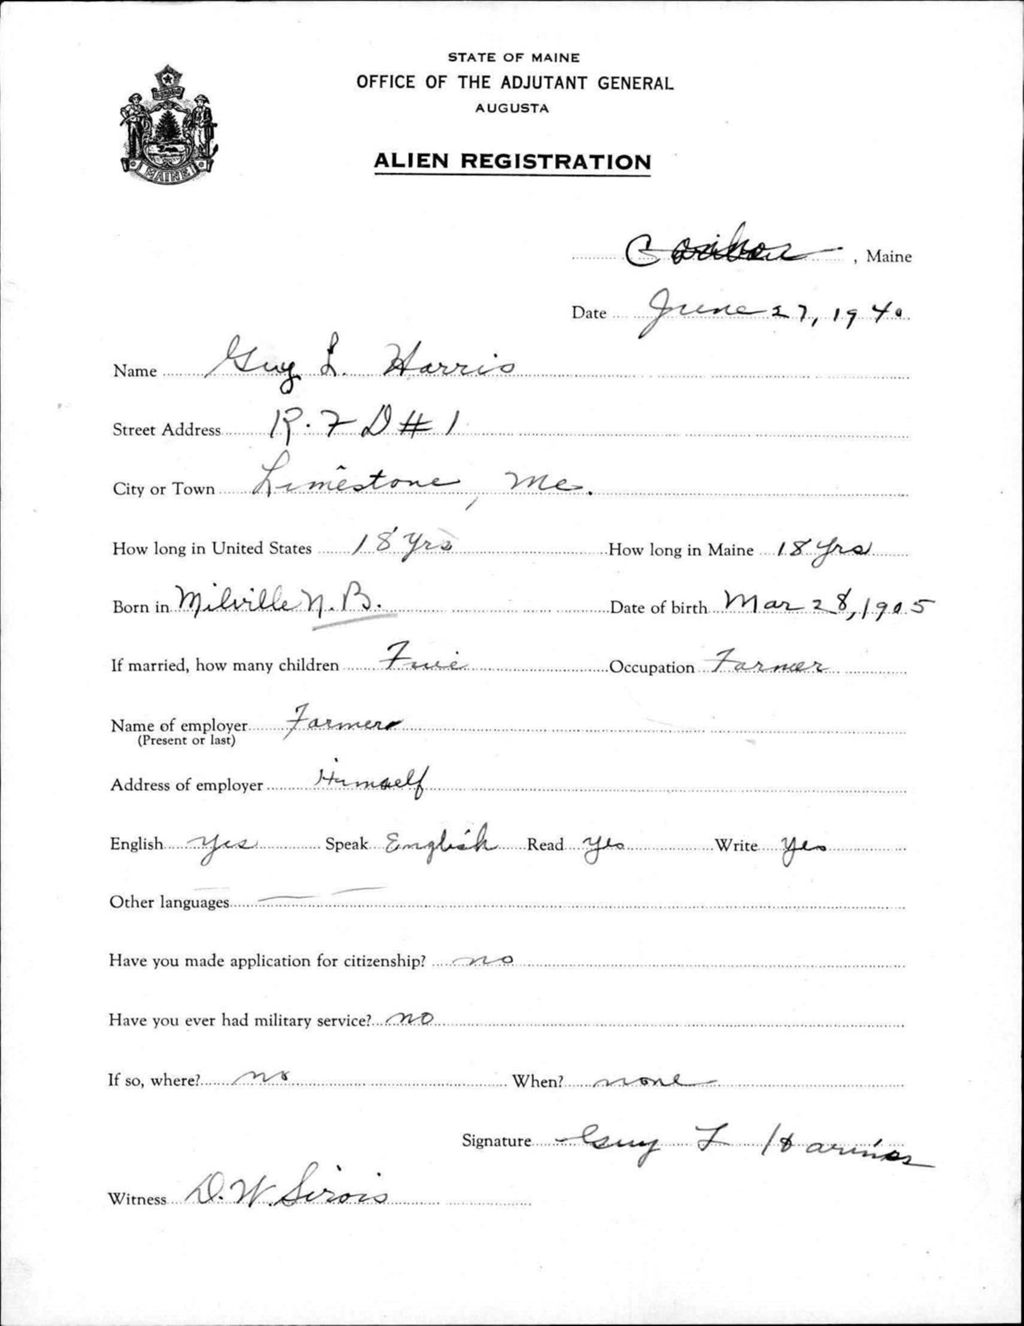 STATE OF MAINE
OFFICE OF THE ADJUTANT GENERAL
AUGUSTA
MAINE
ALIEN REGISTRATION
Caribou, Maine
Date June 27, 1940
Name Guy L. Harris
Street Address R.F D # 1
City or Town Limestone, Me.
How long in United States 18 Yrs How long in Maine 18 Yrs
Born in Milville N.B. Date of birth Mar 28, 1905
If married, how many children Five Occupation Farmer
Name of employer Farmer
(Present or last)
Address of employer Himself
English yes Speak English Read yes Write yes
Other languages
Have you made application for citizenship? no
Have you ever had military service? no
If so, where? no When? none
Signature Guy L Harris
Witness D. W. Sirois